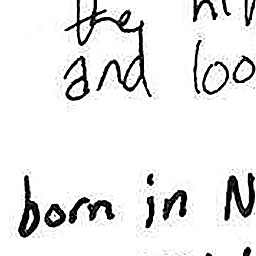 the
and loo
born in N